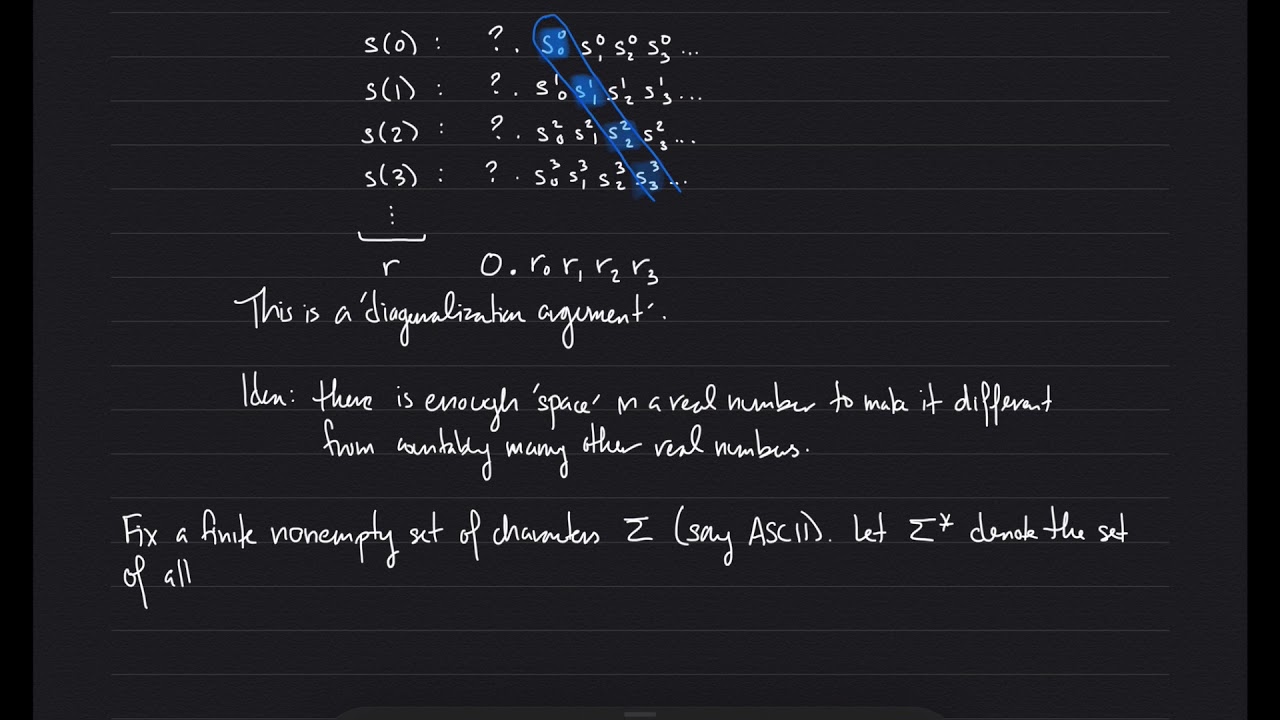 s(0) : ? . s₀⁰ s₁⁰ s₂⁰ s₃⁰ ...
s(1) : ? . s₀¹ s₁¹ s₂¹ s₃¹ ...
s(2) : ? . s₀² s₁² s₂² s₃² ...
s(3) : ? . s₀³ s₁³ s₂³ s₃³ ...
⋮
r 0 . r₀ r₁ r₂ r₃
This is a 'diagonalization argument'.
Idea: there is enough 'space' in a real number to make it different
from countably many other real numbers.
Fix a finite nonempty set of characters Σ (say ASCII). Let Σ* denote the set
of all